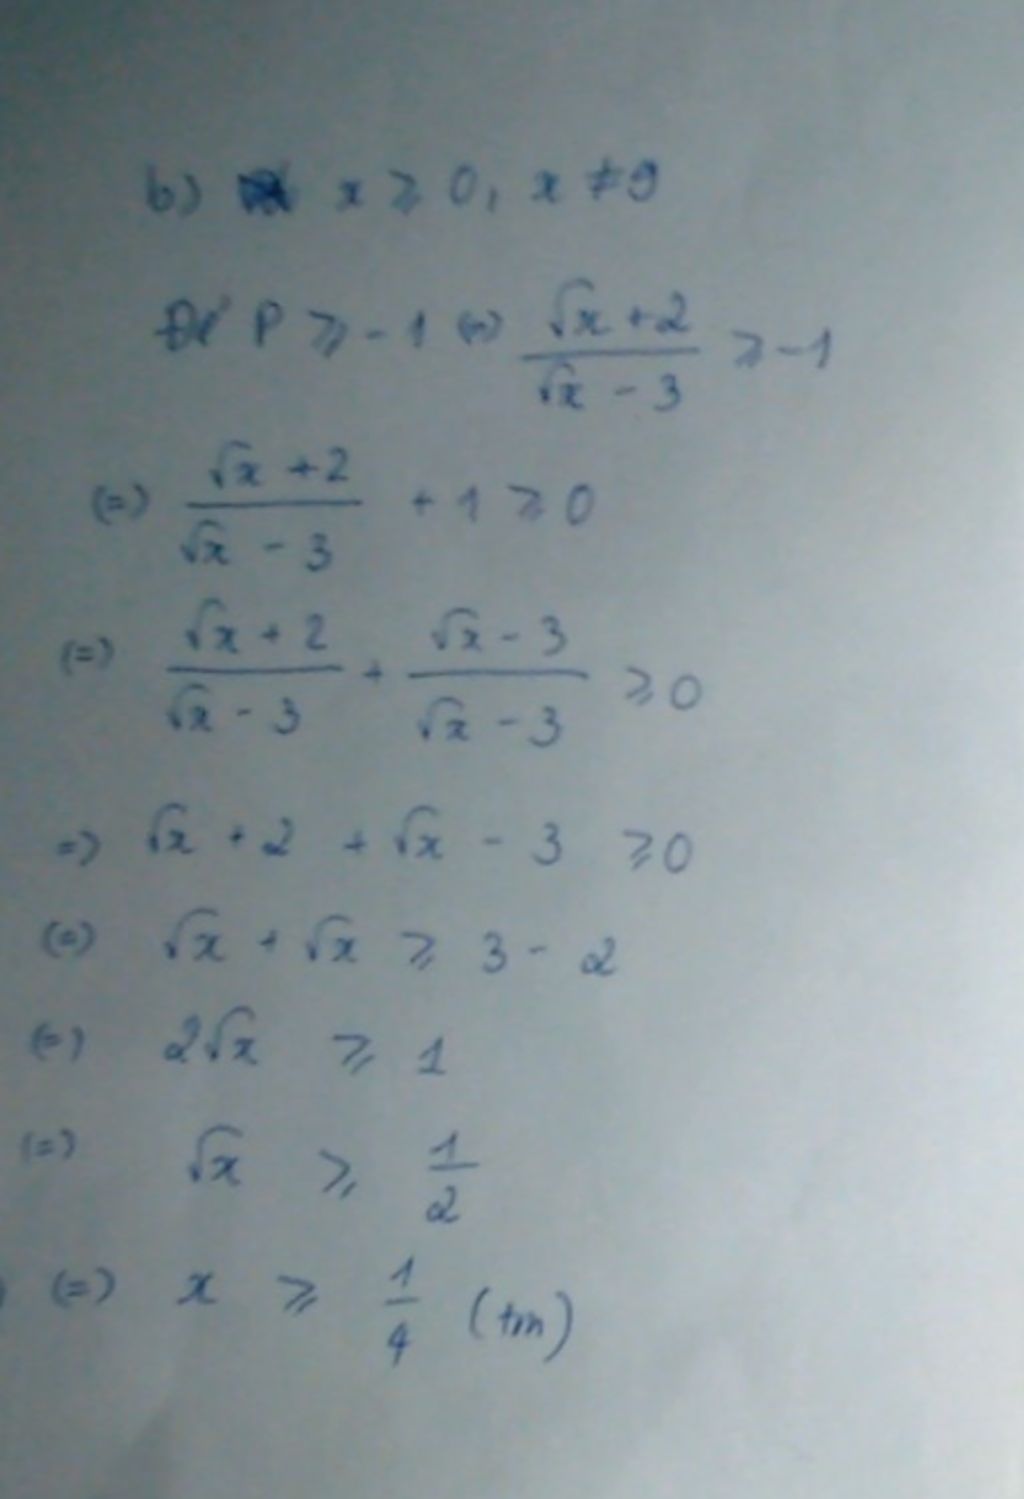 b) x ≥ 0, x ≠ 9
Để P ≥ -1 (=) (√x + 2)/(√x - 3) ≥ -1
(=) (√x + 2)/(√x - 3) + 1 ≥ 0
(=) (√x + 2)/(√x - 3) + (√x - 3)/(√x - 3) ≥ 0
=) √x + 2 + √x - 3 ≥ 0
(=) √x + √x ≥ 3 - 2
(=) 2√x ≥ 1
(=) √x ≥ 1/2
(=) x ≥ 1/4 (tm)